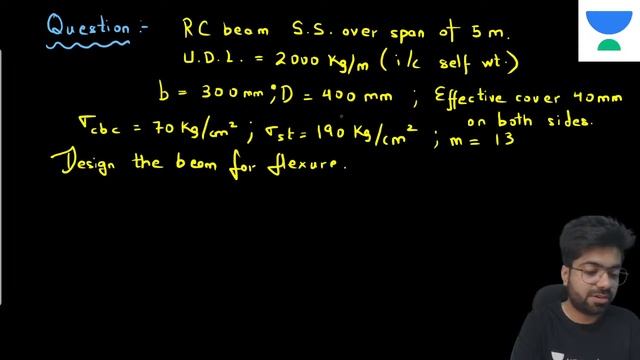 Question :- RC beam S.S. over span of 5 m.
U.D.L. = 2000 Kg/m (i/c self wt.)
b = 300 mm ; D = 400 mm ; Effective cover 40mm
on both sides.
σcbc = 70 Kg/cm² ; σst = 190 Kg/cm² ; m = 13
Design the beam for flexure.